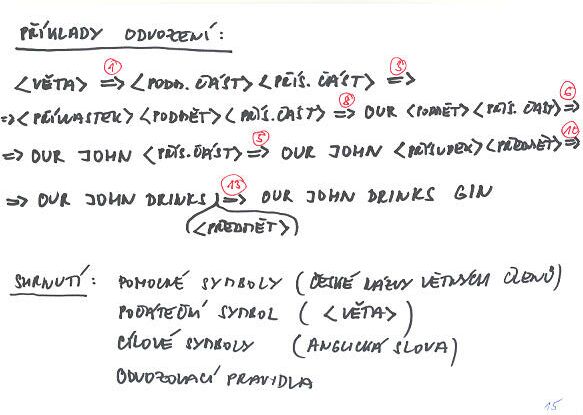 PŘÍKLADY ODVOZENÍ:
<VĚTA> ①⇒ <PODM. ČÁST> <PŘÍS. ČÁST> ③⇒
⇒ <PŘÍVLASTEK> <PODMĚT> <PŘÍS. ČÁST> ⑧⇒ OUR <PODMĚT> <PŘÍS. ČÁST> ⑥⇒
⇒ OUR JOHN <PŘÍS. ČÁST> ⑤⇒ OUR JOHN <PŘÍSUDEK> <PŘEDMĚT> ⑩⇒
⇒ OUR JOHN DRINKS ⑬⇒ OUR JOHN DRINKS GIN
<PŘEDMĚT>
SHRNUTÍ: POMOCNÉ SYMBOLY (ČESKÉ NÁZVY VĚTNÝCH ČLENŮ)
POČÁTEČNÍ SYMBOL (<VĚTA>)
CÍLOVÉ SYMBOLY (ANGLICKÁ SLOVA)
ODVOZOVACÍ PRAVIDLA
15